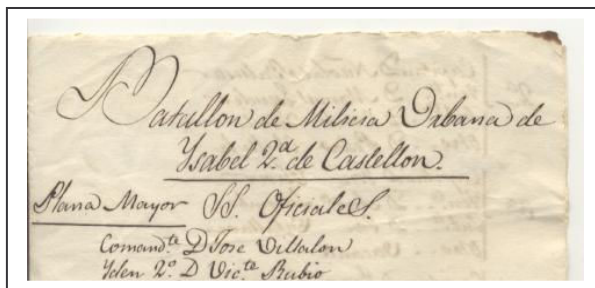 Batallon de Milicia Urbana de
Ysabel 2ª de Castellon.
Plana Mayor SS. Oficiales.
Comandte D Jose Villalon
Yden 2º D Victe Rubio